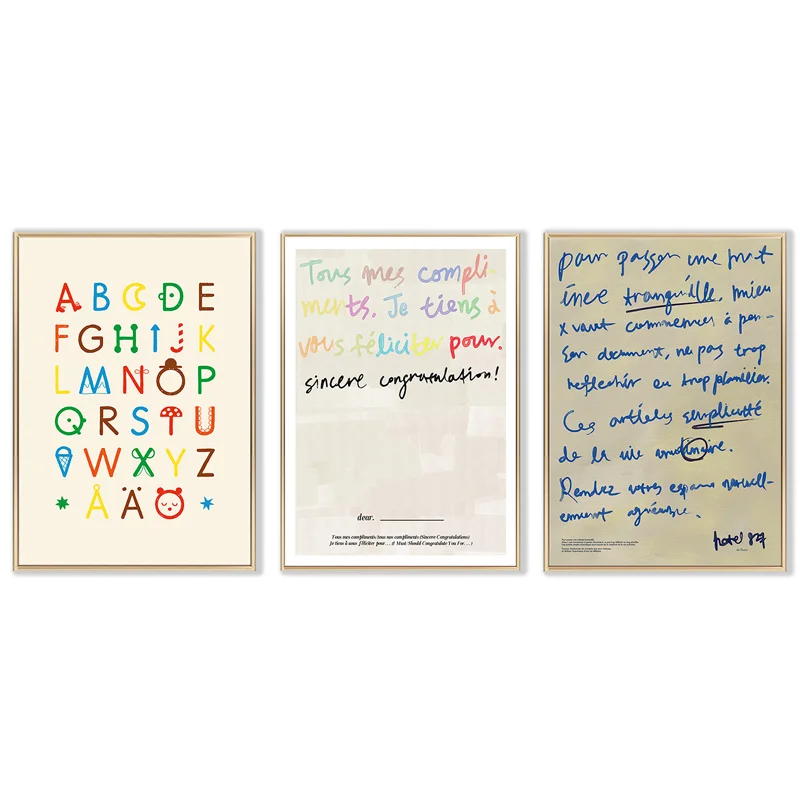 A B C D E
F G H I J K
L M N O P
Q R S T U
V W X Y Z
Å Ä Ö
Tous mes compli-
ments. Je tiens à
vous féliciter pour.
sincere congratulation!
dear.
Tous mes compliments/tous nos compliments (Sincere Congratulations)
Je tiens à vous féliciter pour. . . (I Must/Should Congratulate You For. . . )
pour passer une
tranquille, mieux
vaut commencer à pen-
document, ne pas trop
reflechir ou trop planifier.
Ces articles simplicité
de la vie
Rendez votre espace
agréable.
hotel 827